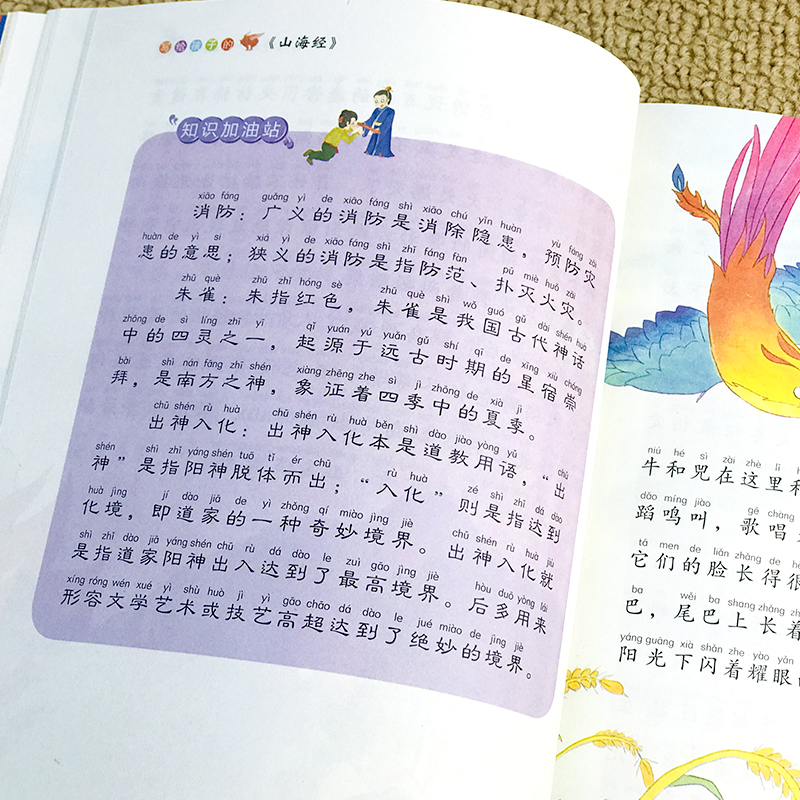 写给孩子的《山海经》
知识加油站
xiāo fáng guǎng yì de xiāo fáng shì xiāo chú yǐn huàn yù fáng zāi
消防：广义的消防是消除隐患，预防灾
huàn de yì si xiá yì de xiāo fáng shì zhǐ fáng fàn pū miè huǒ zāi
患的意思；狭义的消防是指防范、扑灭火灾。
zhū què zhū zhǐ hóng sè zhū què shì wǒ guó gǔ dài shén huà
朱雀：朱指红色，朱雀是我国古代神话
zhōng de sì líng zhī yī qǐ yuán yú yuǎn gǔ shí qī de xīng xiù chóng
中的四灵之一，起源于远古时期的星宿崇
bài shì nán fāng zhī shén xiàng zhēng zhe sì jì zhōng de xià jì
拜，是南方之神，象征着四季中的夏季。
chū shén rù huà chū shén rù huà běn shì dào jiào yòng yǔ chū
出神入化：出神入化本是道教用语，“出
shén shì zhǐ yáng shén tuō tǐ ér chū rù huà zé shì zhǐ dá dào
神”是指阳神脱体而出；“入化”则是指达到
huà jìng jí dào jiā de yì zhǒng qí miào jìng jiè chū shén rù huà jiù
化境，即道家的一种奇妙境界。出神入化就
shì zhǐ dào jiā yáng shén chū rù dá dào le zuì gāo jìng jiè hòu duō yòng lái
是指道家阳神出入达到了最高境界。后多用来
xíng róng wén xué yì shù huò jì yì gāo chāo dá dào le jué miào de jìng jiè
形容文学艺术或技艺高超达到了绝妙的境界。
niú hé sì zài zhè lǐ
牛和兕在这里
dǎo míng jiào gē chàng
蹈鸣叫，歌唱
tā men de liǎn zhǎng de
它们的脸长得很
ba wěi ba shang zhǎng zhe
巴，尾巴上长着
yáng guāng xià shǎn zhe yào yǎn
阳光下闪着耀眼